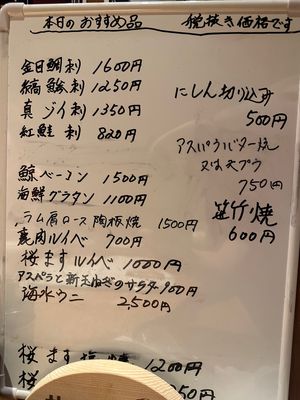 本日のおすすめ品 税抜き価格です
金目鯛刺 1600円
縞鯵刺 1250円
真ゾイ刺 1350円
紅鮭刺 820円
鯨ベーコン 1500円
海鮮グラタン 1100円
ラム肩ロース陶板焼 1500円
鹿肉ルイベ 700円
桜ますルイベ 1000円
アスペラと新玉ねぎのサラダ 900円
海水ウニ 2,500円
桜ます塩焼 1200円
桜
にしん切り込み
500円
アスパラバター焼
又は天プラ
750円
笹竹焼
600円